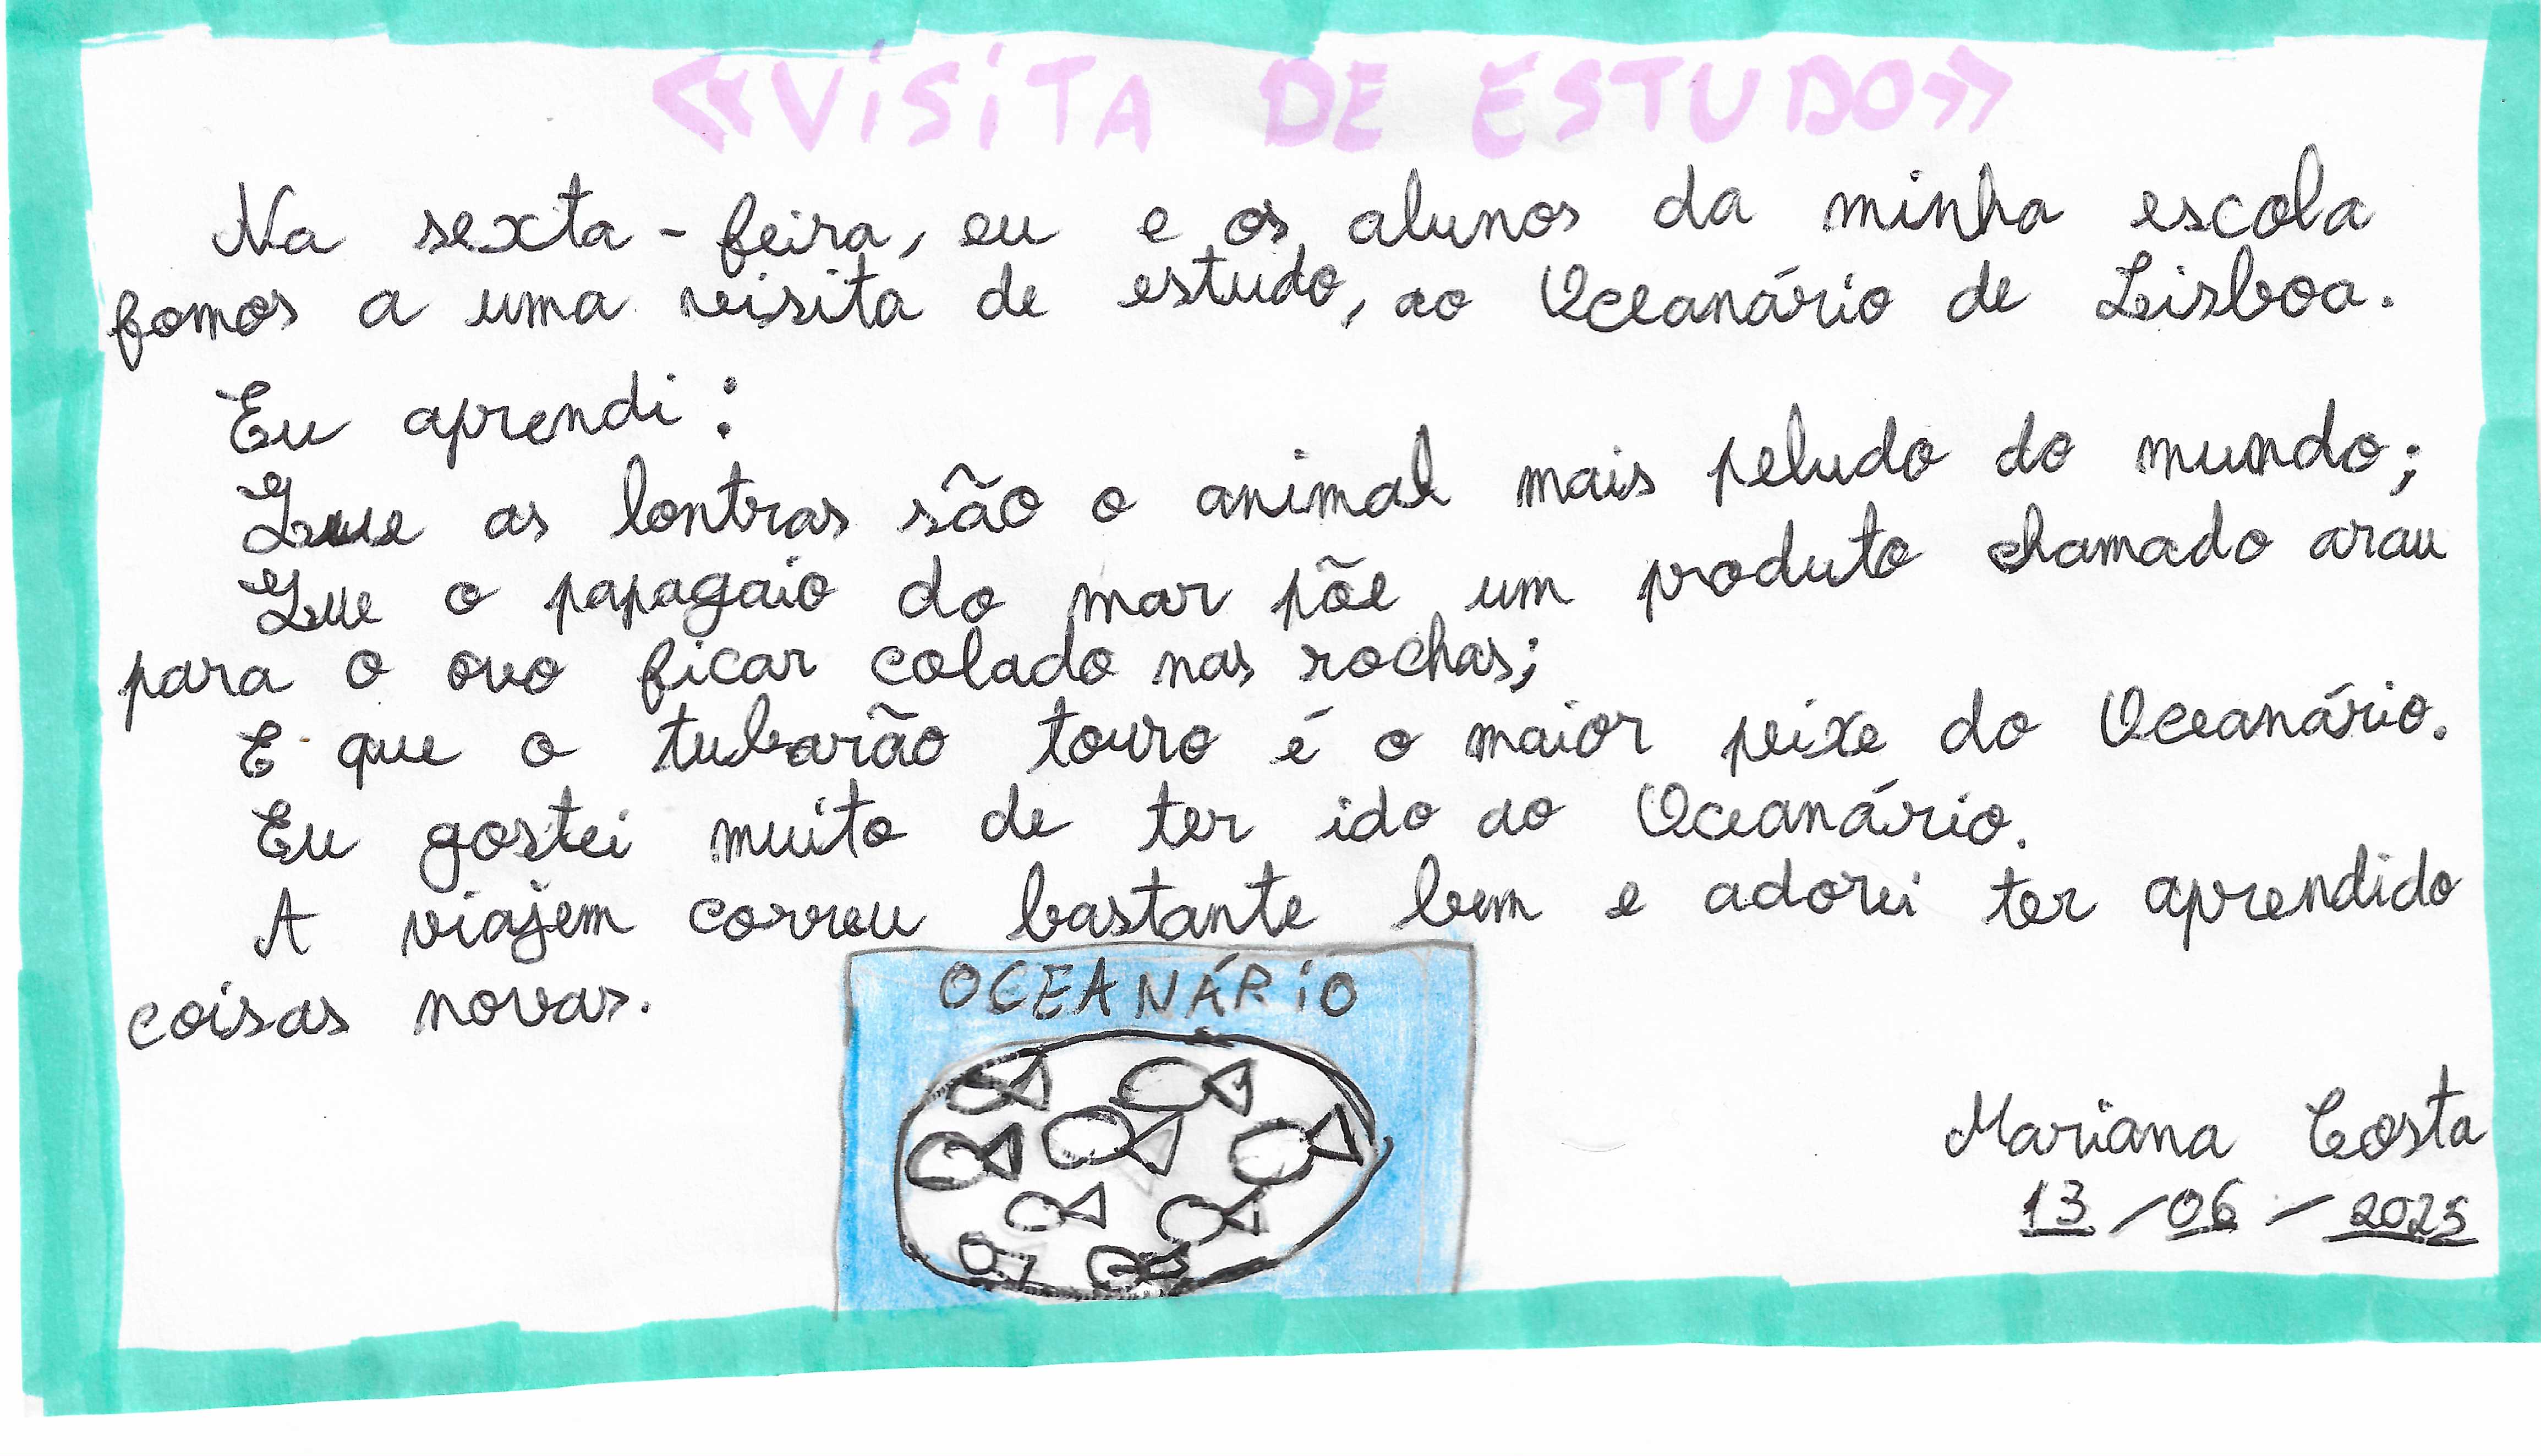 «VISITA DE ESTUDO»
Na sexta-feira, eu e os alunos da minha escola
fomos a uma visita de estudo, ao Oceanário de Lisboa.
Eu aprendi:
Que as lontras são o animal mais peludo do mundo;
Que o papagaio do mar põe um produto chamado arau
para o ovo ficar colado nas rochas;
E que o tubarão touro é o maior peixe do Oceanário.
Eu gostei muito de ter ido ao Oceanário.
A viajem correu bastante bem e adorei ter aprendido
coisas novas.
OCEANÁRIO
Mariana Costa
13/06/2025